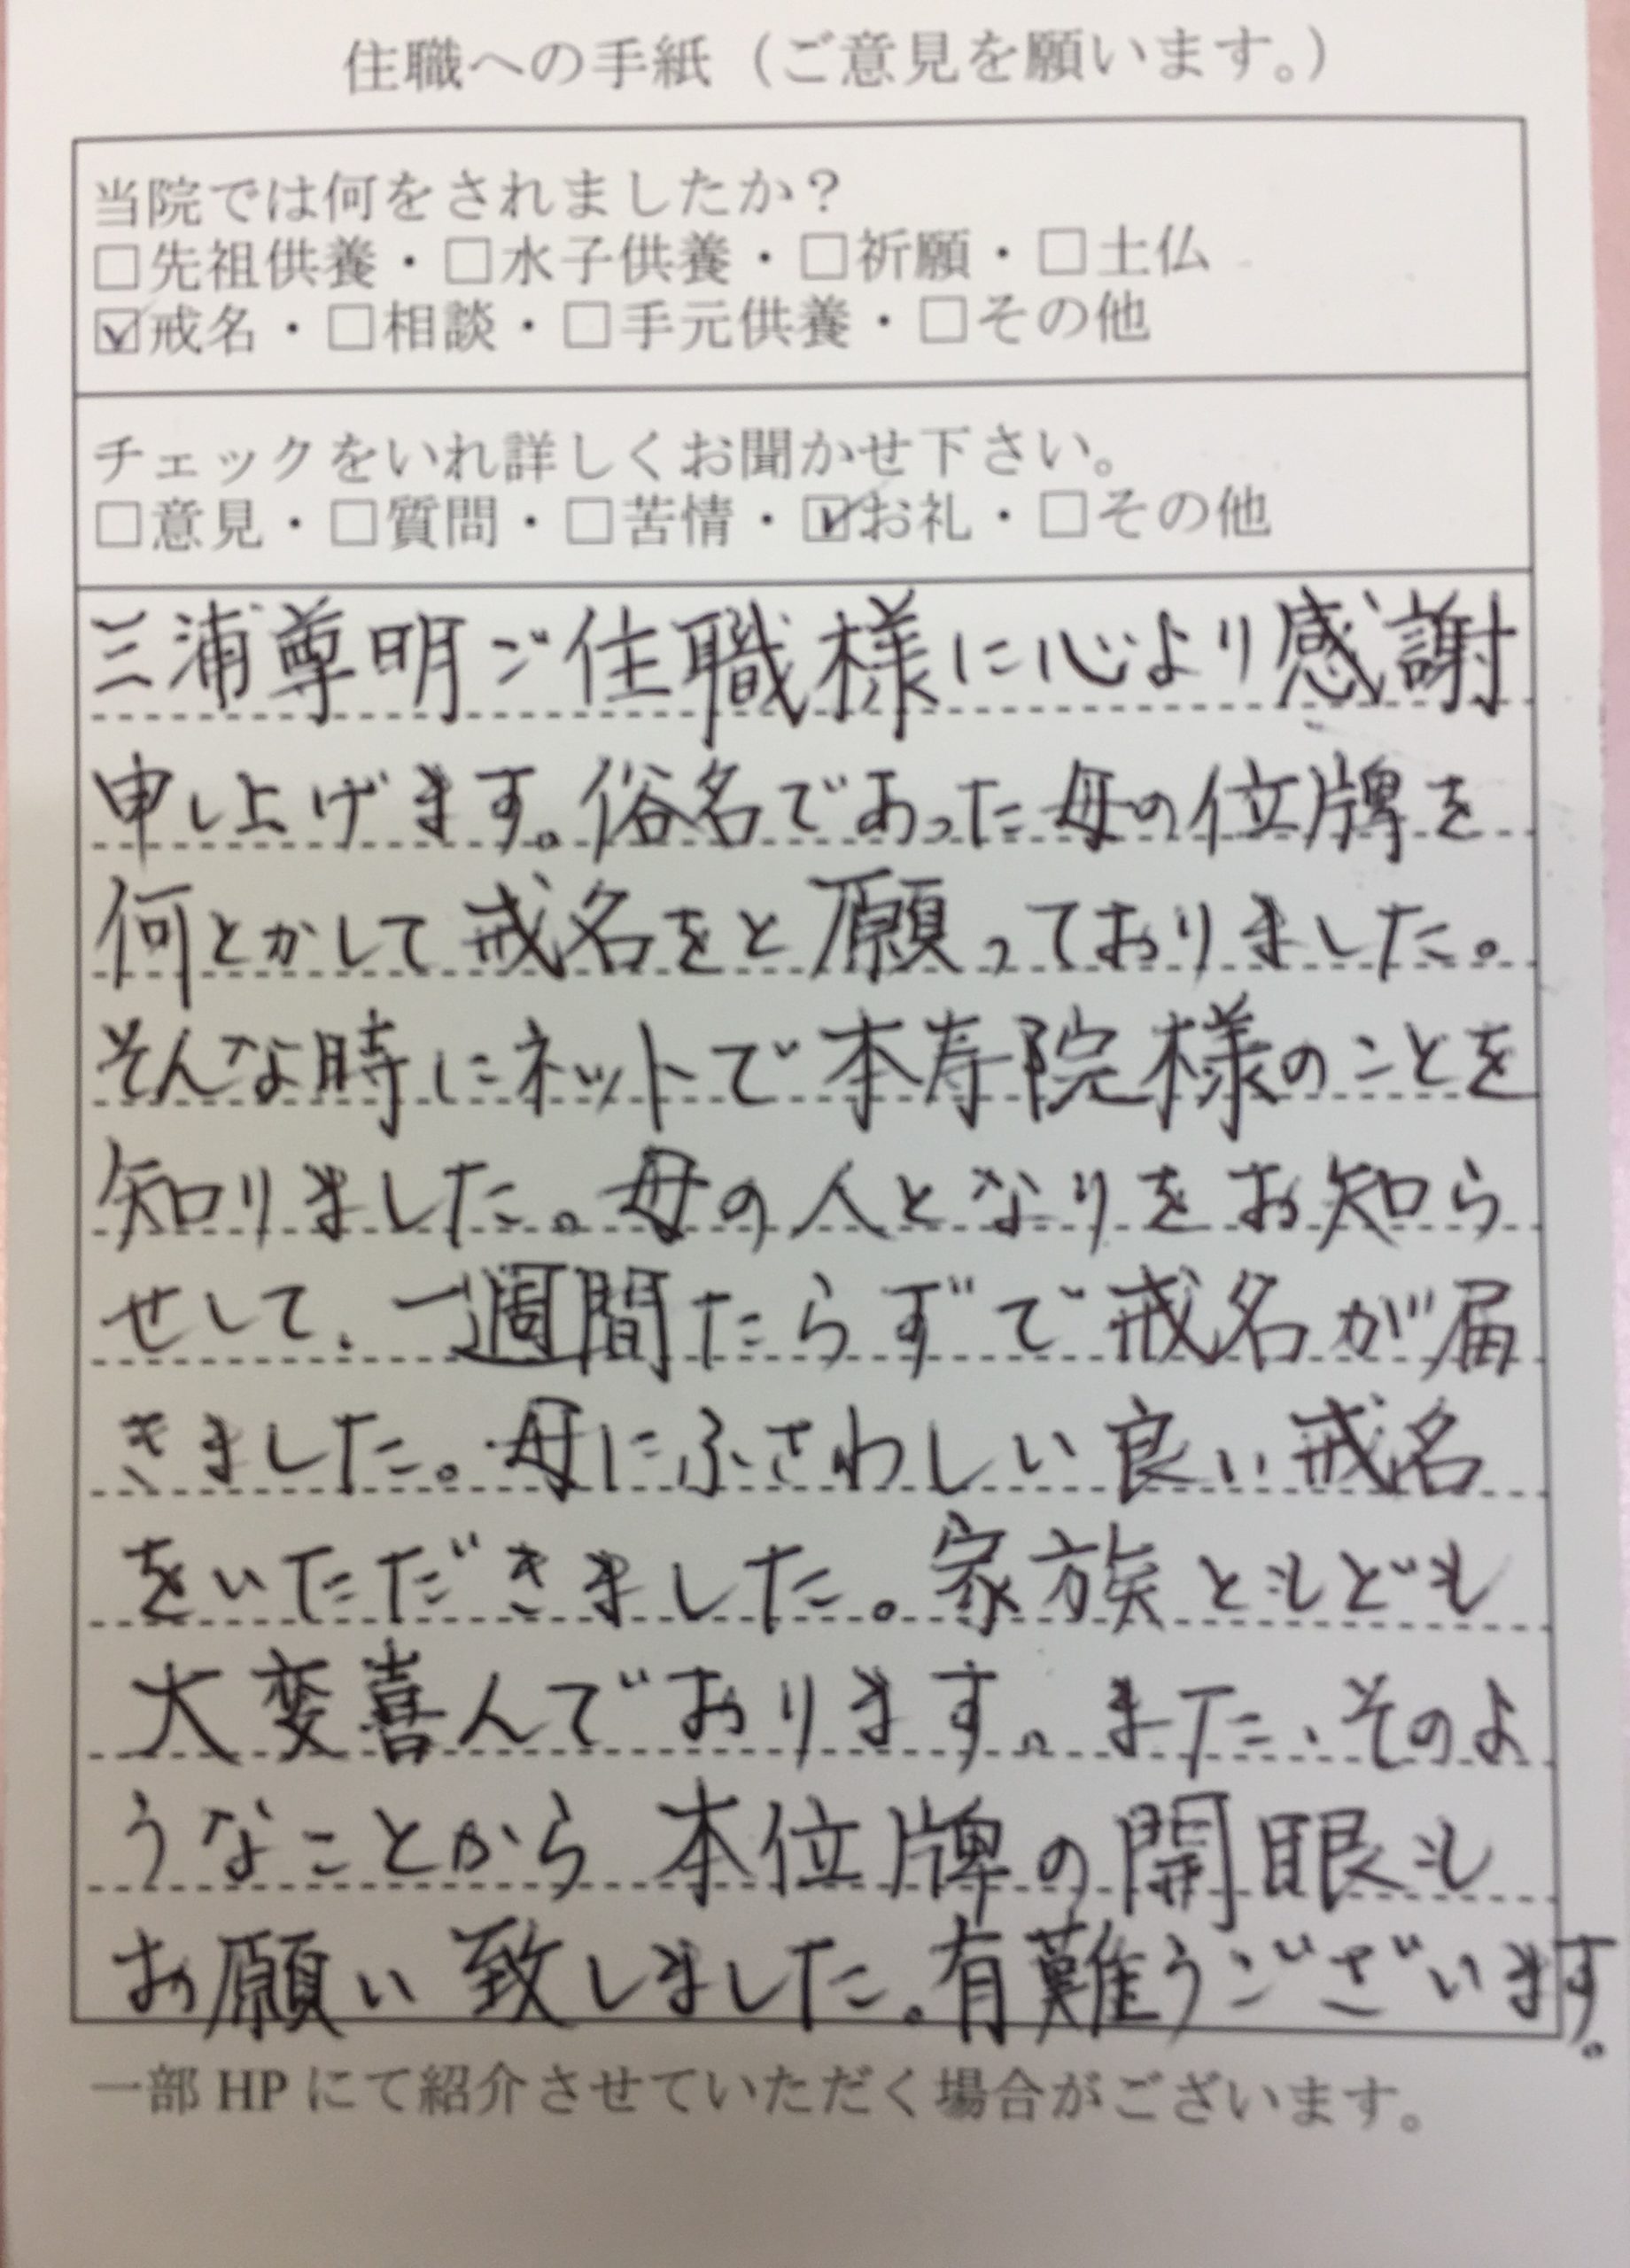 住職への手紙（ご意見を願います。）
当院では何をされましたか？
□先祖供養・□水子供養・□祈願・□土仏
☑戒名・□相談・□手元供養・□その他
チェックをいれ詳しくお聞かせ下さい。
□意見・□質問・□苦情・☑お礼・□その他
三浦尊明ご住職様に心より感謝
申し上げます。俗名であった母の位牌を
何とかして戒名をと願っておりました。
そんな時にネットで本寿院様のことを
知りました。母の人となりをお知ら
せして、一週間たらずで戒名が届
きました。母にふさわしい良い戒名
をいただきました。家族ともども
大変喜んでおります。また、そのよ
うなことから本位牌の開眼も
お願い致しました。有難うございます。
一部HPにて紹介させていただく場合がございます。